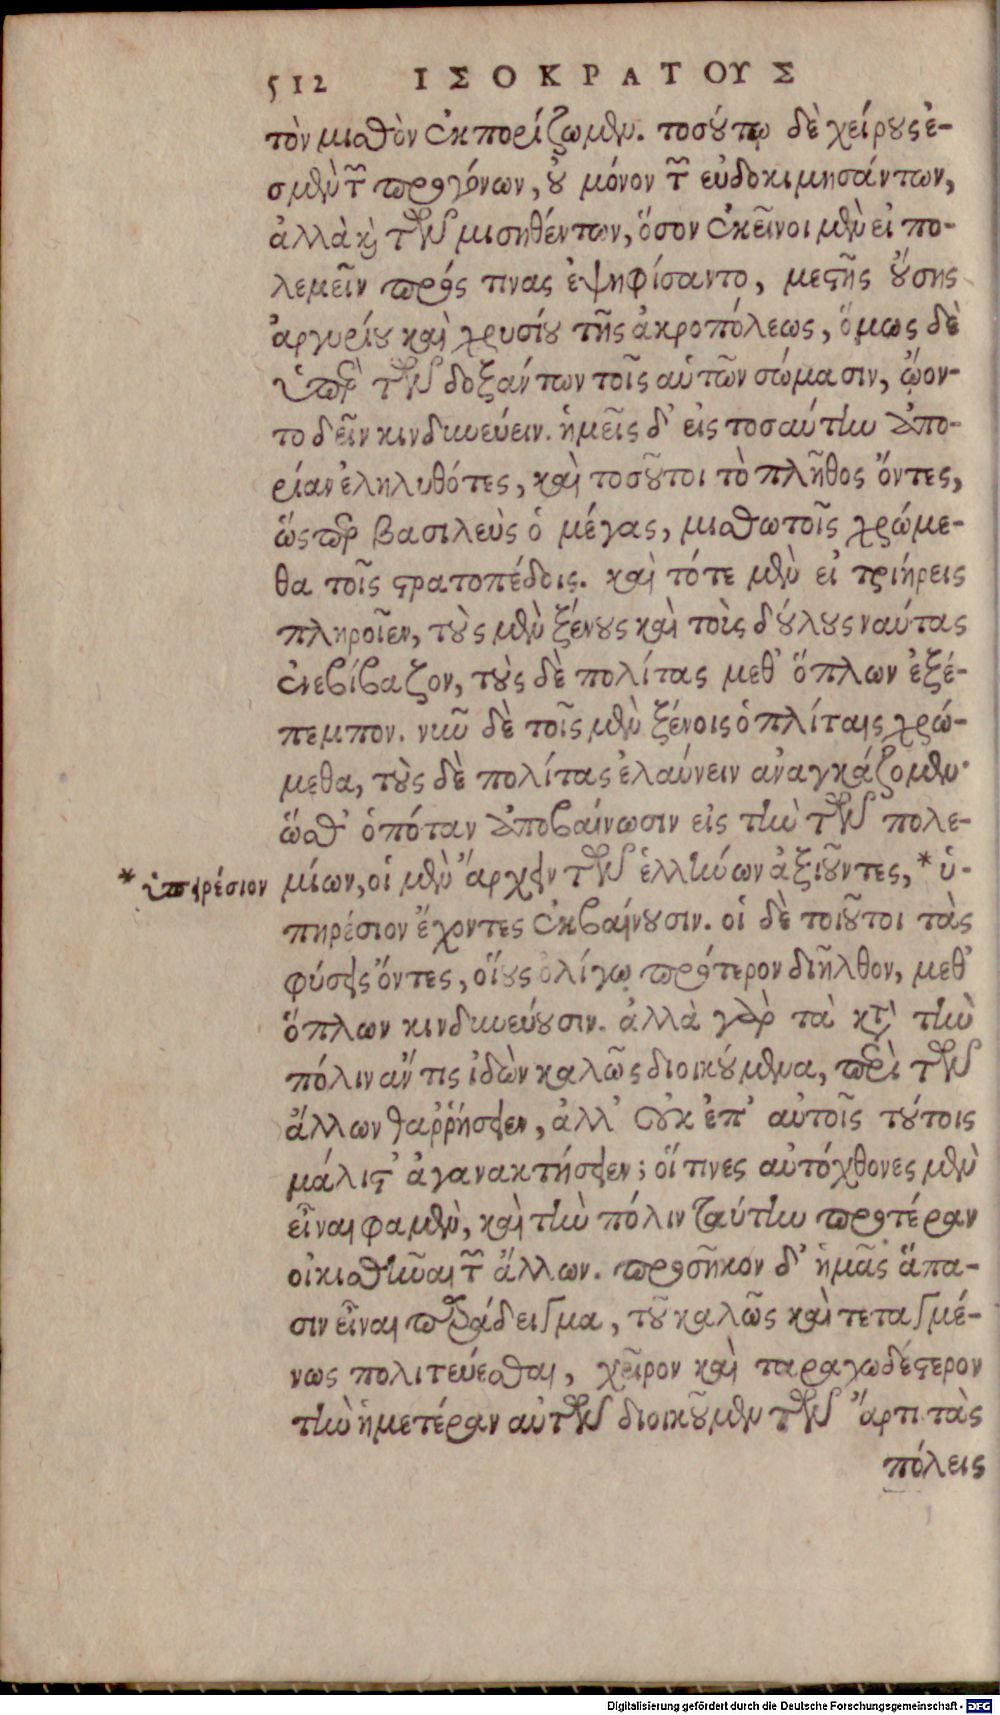 512 ΙΣΟΚΡΑΤΟΥΣ
τὸν μισθὸν ἐκπορίζωμεν. τοσούτῳ δὲ χείρους ἐ-
σμὲν τῶν προγόνων, οὐ μόνον τῶν εὐδοκιμησάντων,
ἀλλὰ καὶ τῶν μισηθέντων, ὅσον ἐκεῖνοι μὲν εἰ πο-
λεμεῖν πρός τινας ἐψηφίσαντο, μεστῆς οὔσης
ἀργυρίου καὶ χρυσίου τῆς ἀκροπόλεως, ὅμως δὲ
ὑπὲρ τῶν δοξάντων τοῖς αὑτῶν σώμασιν, ᾤον-
το δεῖν κινδυνεύειν. ἡμεῖς δ' εἰς τοσαύτην ἀπο-
ρίαν ἐληλυθότες, καὶ τοσοῦτοι τὸ πλῆθος ὄντες,
ὥσπερ βασιλεὺς ὁ μέγας, μισθωτοῖς χρώμε-
θα τοῖς στρατοπέδοις. καὶ τότε μὲν εἰ τριήρεις
πληροῖεν, τοὺς μὲν ξένους καὶ τοὶς δούλους ναύτας
ἐνεβίβαζον, τοὺς δὲ πολίτας μεθ' ὅπλων ἐξέ-
πεμπον. νῦν δὲ τοῖς μὲν ξένοις ὁπλίταις χρώ-
μεθα, τοὺς δὲ πολίτας ἐλαύνειν ἀναγκάζομεν·
ὥσθ' ὁπόταν ἀποβαίνωσιν εἰς τὴν τῶν πολε-
* ὑπηρέσιον μίων, οἱ μὲν ἄρχειν τῶν ἑλλήνων ἀξιοῦντες, * ὑ-
πηρέσιον ἔχοντες ἐκβαίνουσιν. οἱ δὲ τοιοῦτοι τὰς
φύσεις ὄντες, οἵους ὀλίγῳ πρότερον διῆλθον, μεθ'
ὅπλων κινδυνεύουσιν. ἀλλὰ γὰρ τὰ κατὰ τὴν
πόλιν ἄν τις ἰδὼν καλῶς διοικούμενα, περὶ τῶν
ἄλλων θαῤῥήσειεν, ἀλλ' οὐκ ἐπ' αὐτοῖς τούτοις
μάλιστ' ἀγανακτήσειεν; οἵτινες αὐτόχθονες μὲν
εἶναι φαμὲν, καὶ τὴν πόλιν ταύτην προτέραν
οἰκισθῆναι τῶν ἄλλων. προσῆκον δ' ἡμᾶς ἅπα-
σιν εἶναι παράδειγμα, τοῦ καλῶς καὶ τεταγμέ-
νως πολιτεύεσθαι, χεῖρον καὶ ταραχωδέστερον
τὴν ἡμετέραν αὐτῶν διοικοῦμεν τῶν ἄρτι τὰς
πόλεις
Digitalisierung gefördert durch die Deutsche Forschungsgemeinschaft - DFG